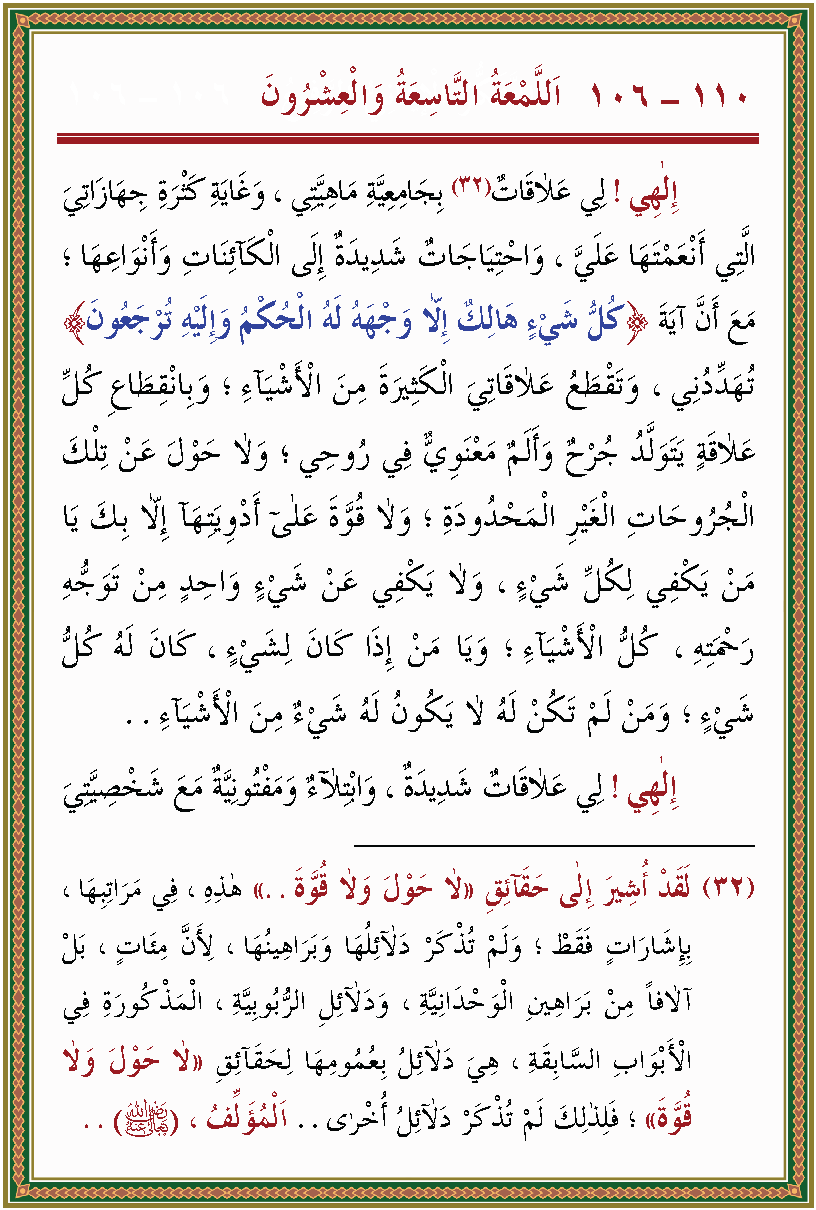 ١١٠ – ١٠٦ اَللَّمْعَةُ التَّاسِعَةُ وَالْعِشْرُونَ
إِلٰهِي ! لِي عَلَاقَاتٌ(٣٢) بِجَامِعِيَّةِ مَاهِيَّتِي ، وَغَايَةِ كَثْرَةِ جِهَازَاتِيَ
الَّتِي أَنْعَمْتَهَا عَلَيَّ ، وَاحْتِيَاجَاتٌ شَدِيدَةٌ إِلَى الْكَآئِنَاتِ وَأَنْوَاعِهَا ؛
مَعَ أَنَّ آيَةَ ﴿كُلُّ شَيْءٍ هَالِكٌ إِلَّا وَجْهَهُ لَهُ الْحُكْمُ وَإِلَيْهِ تُرْجَعُونَ﴾
تُهَدِّدُنِي ، وَتَقْطَعُ عَلَاقَاتِيَ الْكَثِيرَةَ مِنَ الْأَشْيَآءِ ؛ وَبِانْقِطَاعِ كُلِّ
عَلَاقَةٍ يَتَوَلَّدُ جُرْحٌ وَأَلَمٌ مَعْنَوِيٌّ فِي رُوحِي ؛ وَلَا حَوْلَ عَنْ تِلْكَ
الْجُرُوحَاتِ الْغَيْرِ الْمَحْدُودَةِ ؛ وَلَا قُوَّةَ عَلٰىٓ أَدْوِيَتِهَآ إِلَّا بِكَ يَا
مَنْ يَكْفِي لِكُلِّ شَيْءٍ ، وَلَا يَكْفِي عَنْ شَيْءٍ وَاحِدٍ مِنْ تَوَجُّهِ
رَحْمَتِهِ ، كُلُّ الْأَشْيَآءِ ؛ وَيَا مَنْ إِذَا كَانَ لِشَيْءٍ ، كَانَ لَهُ كُلُّ
شَيْءٍ ؛ وَمَنْ لَمْ تَكُنْ لَهُ لَا يَكُونُ لَهُ شَيْءٌ مِنَ الْأَشْيَآءِ . .
إِلٰهِي ! لِي عَلَاقَاتٌ شَدِيدَةٌ ، وَابْتِلَآءٌ وَمَفْتُونِيَّةٌ مَعَ شَخْصِيَّتِيَ
(٣٢) لَقَدْ أُشِيرَ إِلٰى حَقَآئِقِ «لَا حَوْلَ وَلَا قُوَّةَ . .» هٰذِهِ ، فِي مَرَاتِبِهَا ،
بِإِشَارَاتٍ فَقَطْ ؛ وَلَمْ تُذْكَرْ دَلَآئِلُهَا وَبَرَاهِينُهَا ، لِأَنَّ مَئِاتٍ ، بَلْ
آلَافاً مِنْ بَرَاهِينِ الْوَحْدَانِيَّةِ ، وَدَلَآئِلِ الرُّبُوبِيَّةِ ، الْمَذْكُورَةِ فِي
الْأَبْوَابِ السَّابِقَةِ ، هِيَ دَلَآئِلُ بِعُمُومِهَا لِحَقَآئِقِ «لَا حَوْلَ وَلَا
قُوَّةَ» ؛ فَلِذٰلِكَ لَمْ تُذْكَرْ دَلَآئِلُ أُخْرٰى . . اَلْمُؤَلِّفُ ، (رَضِيَ اللّٰهُ تَعَالٰى عَنْهُ) . .